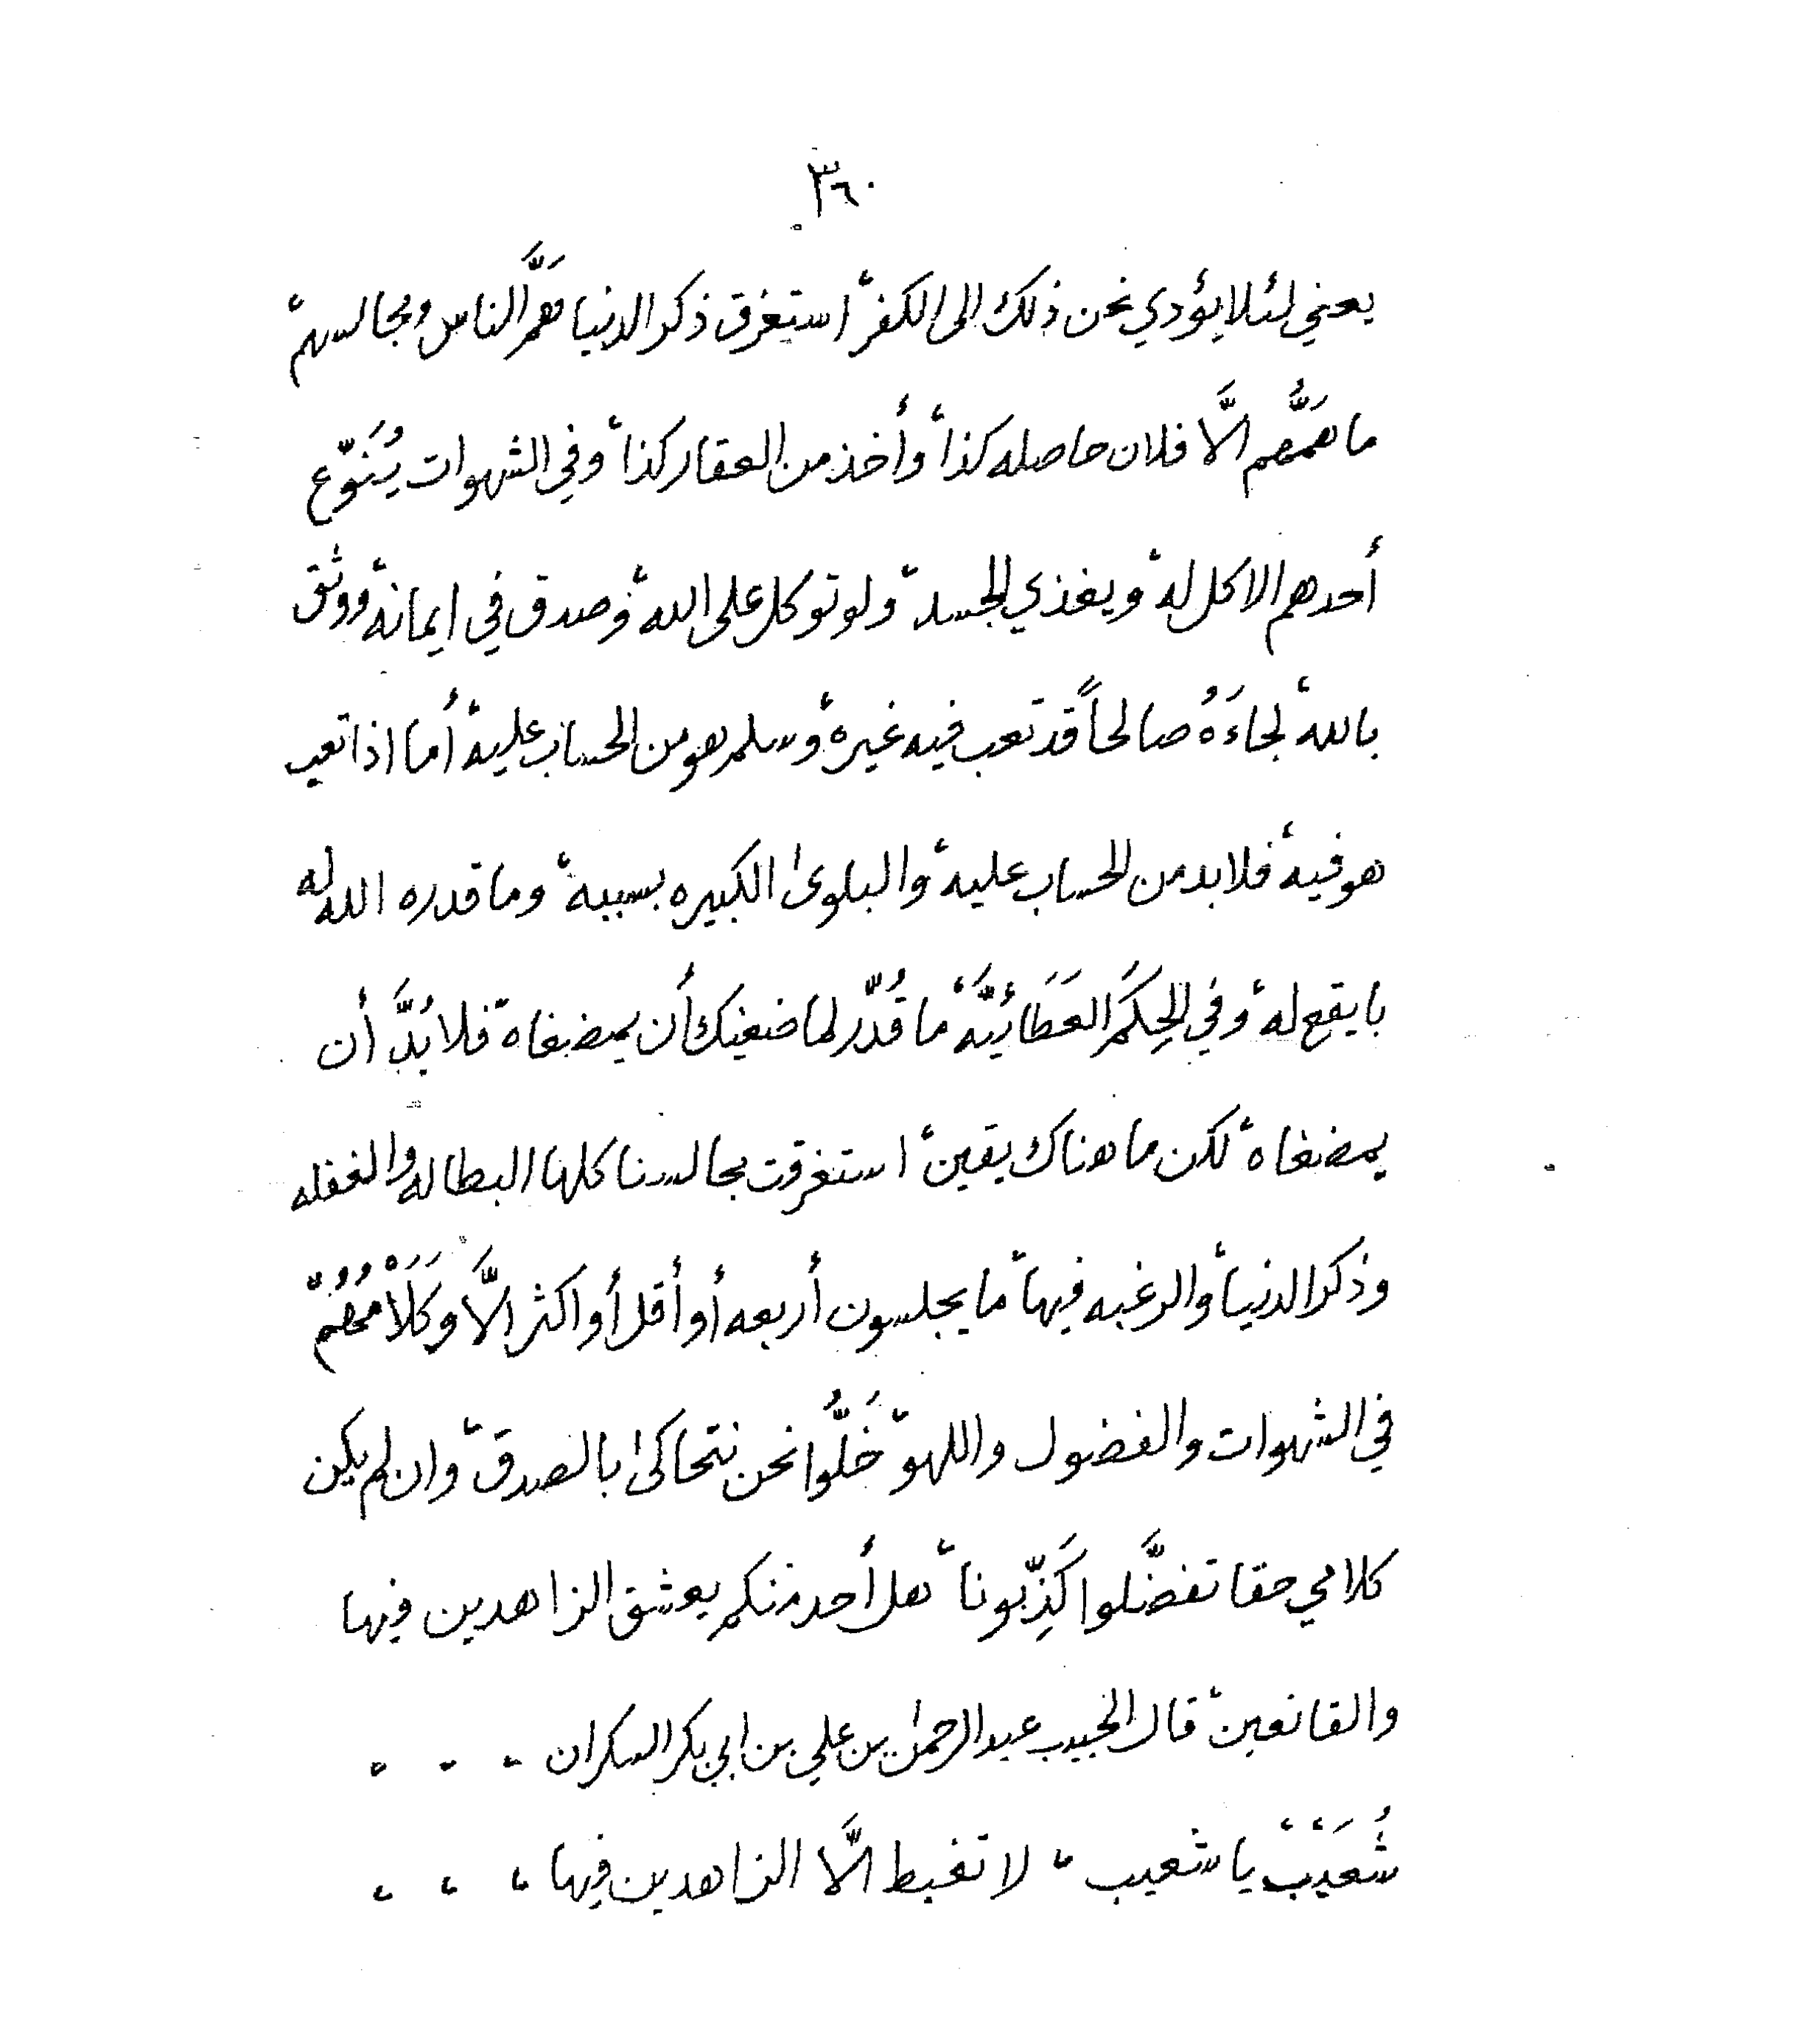 ٣٦٠
يعني لئلا يؤدي نحن ذلك الى الكفر، استغرق ذكر الدنيا هَمَّ الناس ومجالسهم،
ما هَمُّهم الَّا فلان حاصله كذا، وأخذ من العقار كذا، وفي الشهوات يُنَوّع
أحدهم الاكل له، ويغذي الجسد، ولو توكل على الله، وصدق في ايمانه، ووثق
بالله، لجاءَهُ صالحاً قد تعب فيه غيره، وسلم هو من الحساب عليه، أما اذا تعب
هو فيه، فلابد من الحساب عليه، والبلوى الكبيره بسببه، وما قدره الله له
بايقع له، وفي الحِكَم العَطَائيَّه، ما قُدّر لماضغيك أن يمضغاه، فلا بُدَّ أن
يمضغاه، لكن ما هناك يقين، استغرقت مجالسنا كلها البطاله والغفله
وذكر الدنيا، والرغبه فيها، ما يجلسون أربعه أو أقل أو اكثر الَّا وكَلَامُهُمّ
في الشهوات والفضول واللهو، خَلُّوا نحن نتحاكى بالصدق، وان لم يكن
كلامي حقا تفضَّلوا كَذِّبونا، هل أحد منكم يعشق الزاهدين فيها
والقانعين، قال الحبيب عبدالرحمن بن علي بن ابي بكر السكران ،  ،  ،
شُعَيْبْ يا شعيب ، لا تغبط الَّا الزاهدين فيها ،  ،  ،